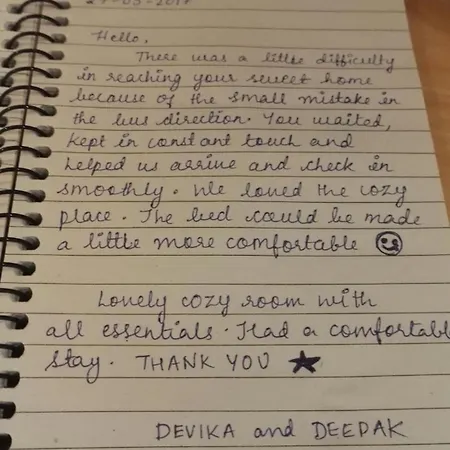 27-05-2017
Hello,
There was a little difficulty
in reaching your sweet home
because of the small mistake in
the bus direction. You waited,
kept in constant touch and
helped us arrive and check in
smoothly. We loved the cozy
place. The bed could be made
a little more comfortable
Lovely cozy room with
all essentials. Had a comfortabl
stay. THANK YOU
DEVIKA and DEEPAK